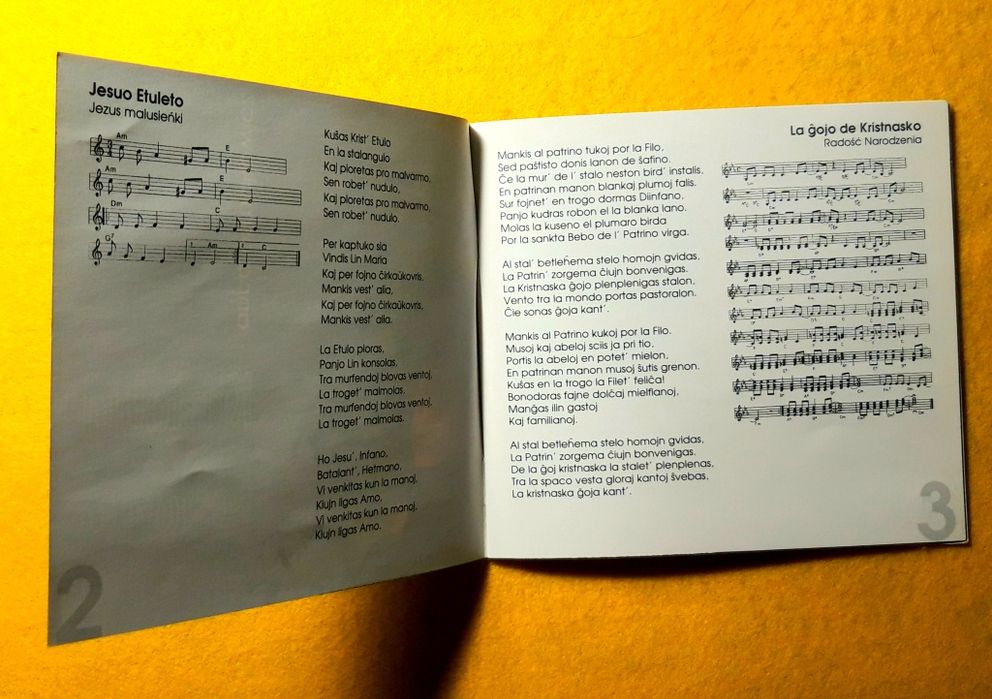 Jesuo Etuleto
Jezus malusieńki
Am
E
Am
E
Dm
C
G⁷
1.
Am
2.
C
Kuŝas Krist' Etulo
En la stalangulo
Kaj ploretas pro malvarmo,
Sen robet' nudulo,
Kaj ploretas pro malvarmo,
Sen robet' nudulo,
Per kaptuko sia
Vindis Lin Maria
Kaj per fojno ĉirkaŭkovris,
Mankis vest' alia,
Kaj per fojno ĉirkaŭkovris,
Mankis vest' alia.
La Etulo ploras,
Panjo Lin konsolas,
Tra murfendoj blovas ventoj,
La troget' malmolas.
Tra murfendoj blovas ventoj,
La troget' malmolas.
Ho Jesu', Infano,
Batalant', Hetmano,
Vi venkitas kun la manoj,
Kiujn ligas Amo,
Vi venkitas kun la manoj,
Kiujn ligas Amo.
2
La ĝojo de Kristnasko
Radość Narodzenia
Mankis al patrino tukoj por la Filo,
Sed paŝtisto donis lanon de ŝafino.
Ĉe la mur' de l' stalo neston bird' instalis,
En patrinan manon blankaj plumoj falis.
Sur fojnet' en trogo dormas Diinfano,
Panjo kudras robon el la blanka lano.
Molas la kuseno el plumaro birda
Por la sankta Bebo de l' Patrino virga.
Al stal' betleĥema stelo homojn gvidas,
La Patrin' zorgema ĉiujn bonvenigas.
La Kristnaska ĝojo plenplenigas stalon,
Vento tra la mondo portas pastoralon.
Ĉie sonas ĝoja kant'.
Mankis al Patrino kukoj por la Filo.
Musoj kaj abeloj sciis ja pri tio.
Portis la abeloj en potet' mielon,
En patrinan manon musoj ŝutis grenon.
Kuŝas en la trogo la Filet' feliĉa!
Bonodoras fajne dolĉaj mielfianoj,
Manĝas ilin gastoj
Kaj familianoj.
Al stal betleĥema stelo homojn gvidas,
La Patrin' zorgema ĉiujn bonvenigas.
De la ĝoj kristnaska la stalet' plenplenas,
Tra la spaco vesta gloraj kantoj ŝvebas,
La kristnaska ĝoja kant'.
3